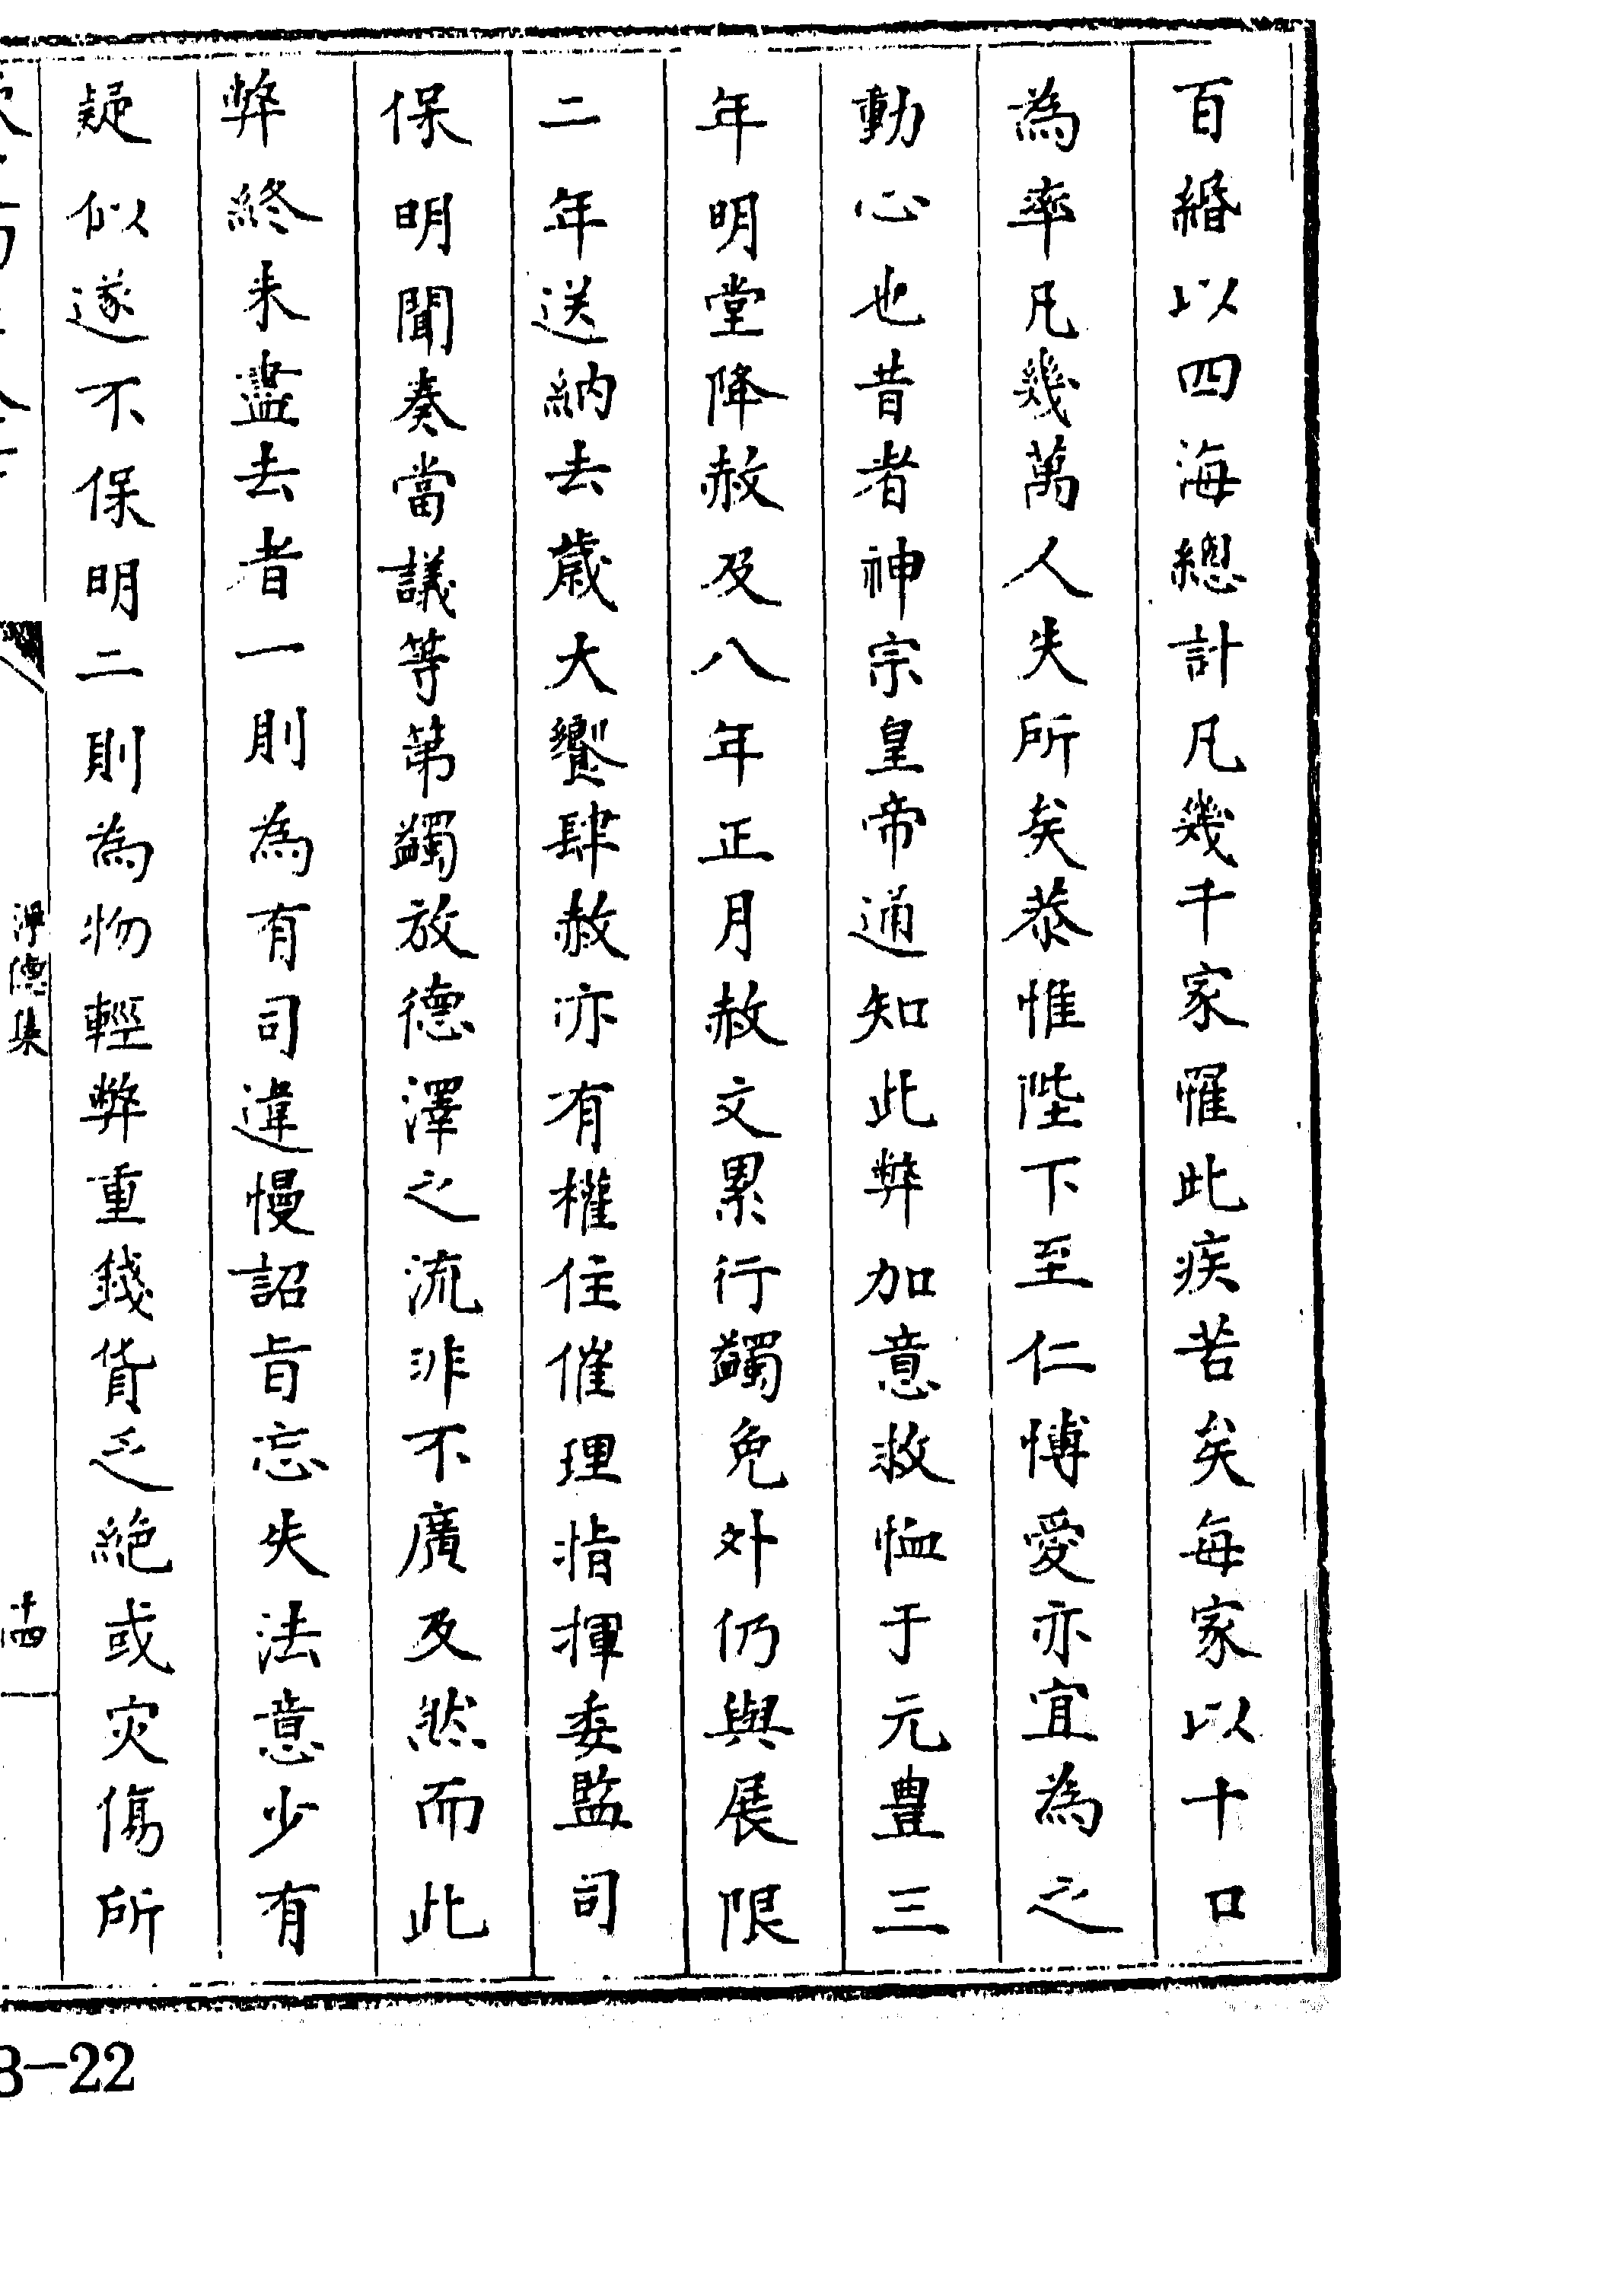 百緡以四海總計凡幾千家罹此疾苦矣每家以十口
為率凡幾萬人失所矣恭惟陛下至仁博愛亦宜為之
動心也昔者神宗皇帝通知此弊加意救恤于元豊三
年明堂降赦及八年正月赦文累行蠲免外仍與展限
二年送納去歳大饗肆赦亦有權住催理指揮委監司
保明聞奏當議等第蠲放德澤之流非不廣及然而此
弊終未盡去者一則為有司違慢詔旨忘失法意少有
疑似遂不保明二則為物輕弊重錢貨乏絶或灾傷所
淨德集
十四
8-22